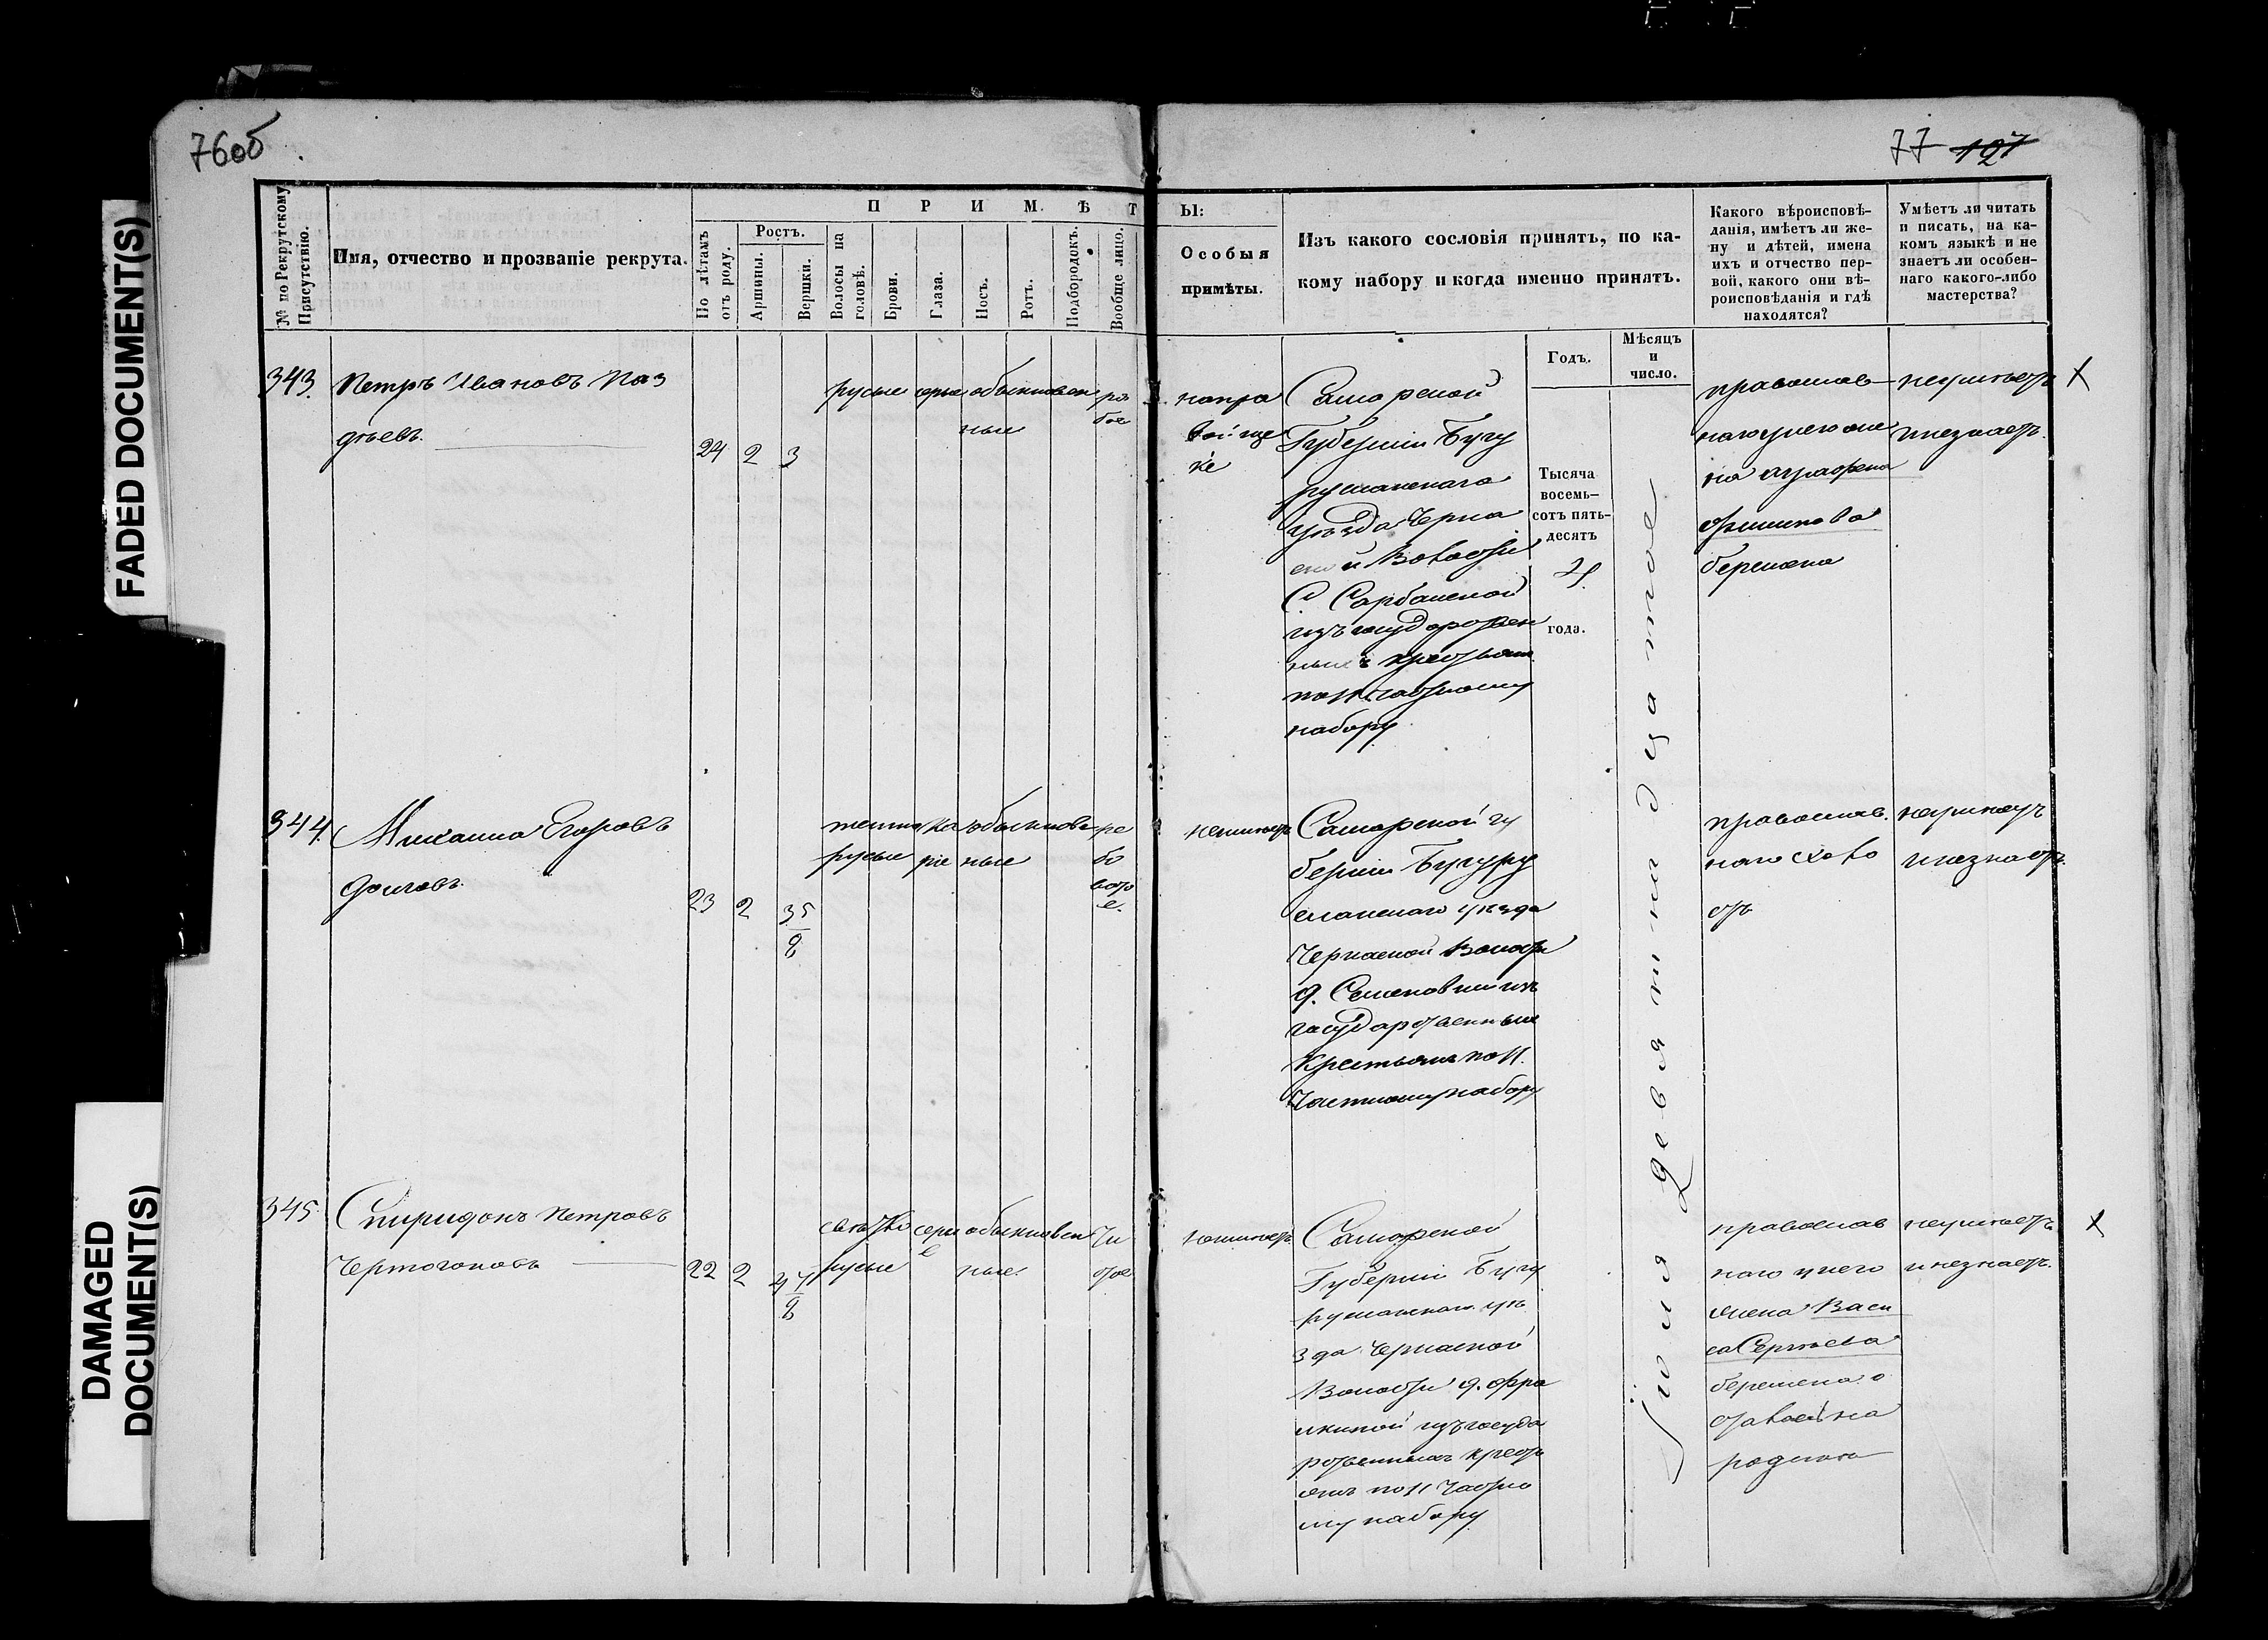 76об
77 127
FADED DOCUMENT(S)
DAMAGED
DOCUMENT(S)
№ по Рекрутскому
Присутствію.
Имя, отчество и прозваніе рекрута.
П Р И М Ѣ Т Ы:
По лѣтамъ
отъ роду.
Ростъ.
Аршины.
Вершки.
Волосы на
головѣ.
Брови.
Глаза.
Носъ.
Ротъ.
Подбородокъ.
Вообще лицо.
Особыя
примѣты.
Изъ какого сословія принятъ, по ка-
кому набору и когда именно принятъ.
Годъ.
Мѣсяцъ
и
число.
Какого вѣроисповѣ-
данія, имѣетъ ли же-
ну и дѣтей, имена
ихъ и отчество пер-
вой, какого они вѣ-
роисповѣданія и гдѣ
находятся?
Умѣетъ ли читать
и писать, на ка-
комъ языкѣ и не
знаетъ ли особен-
наго какого-либо
мастерства?
343.
Петръ Ивановъ Паз
дѣевъ.
24 2 3
русые серые обыкновен
ные
ря
бое
на пра
вой ще
ке
Самарской
Губерніи Бугу
русланскаго
уѣзда Черка
ской Волости
С. Сарбайской
изъ государствен
ныхъ крестьянъ
по 11. частному
набору
Тысяча
восемь-
сотъ пять-
десятъ
4.
года.
Іюля девятнадцатое
православ
наго у него же
на Аграфена
беремена
неумѣетъ
и незнаетъ.
X
344.
Михаила Егоровъ
Долговъ.
23 2 3 5/8
темно
русые
ка
ріе
обыкнове
ные
ря
бо
вато
е.
неимѣетъ
Самарской гу
берніи Бугуру
сланскаго уѣзда
Черкаской Волости
д. Семеновки изъ
государственныхъ
Крестьянъ по 11.
Частному набору
православ.
наго холо
стъ
неумѣетъ
и незнаетъ.
345.
Спиридонъ Петровъ
Чертогоновъ
22 2 4 4/8
свѣтло
русые
серы
е
обыкновен
ные.
Чи
стое
неимѣетъ
Самарской
Губерніи Бугу
русланскаго уѣ
зда Черкаской
Волости д.
изъ госуда
рственныхъ крест
янъ по 11 Частно
му набору
православ
наго у него
жена Васи
са Сергѣева
беремена о
ставлена
родинѣ
неумѣетъ
и незнаетъ.
X